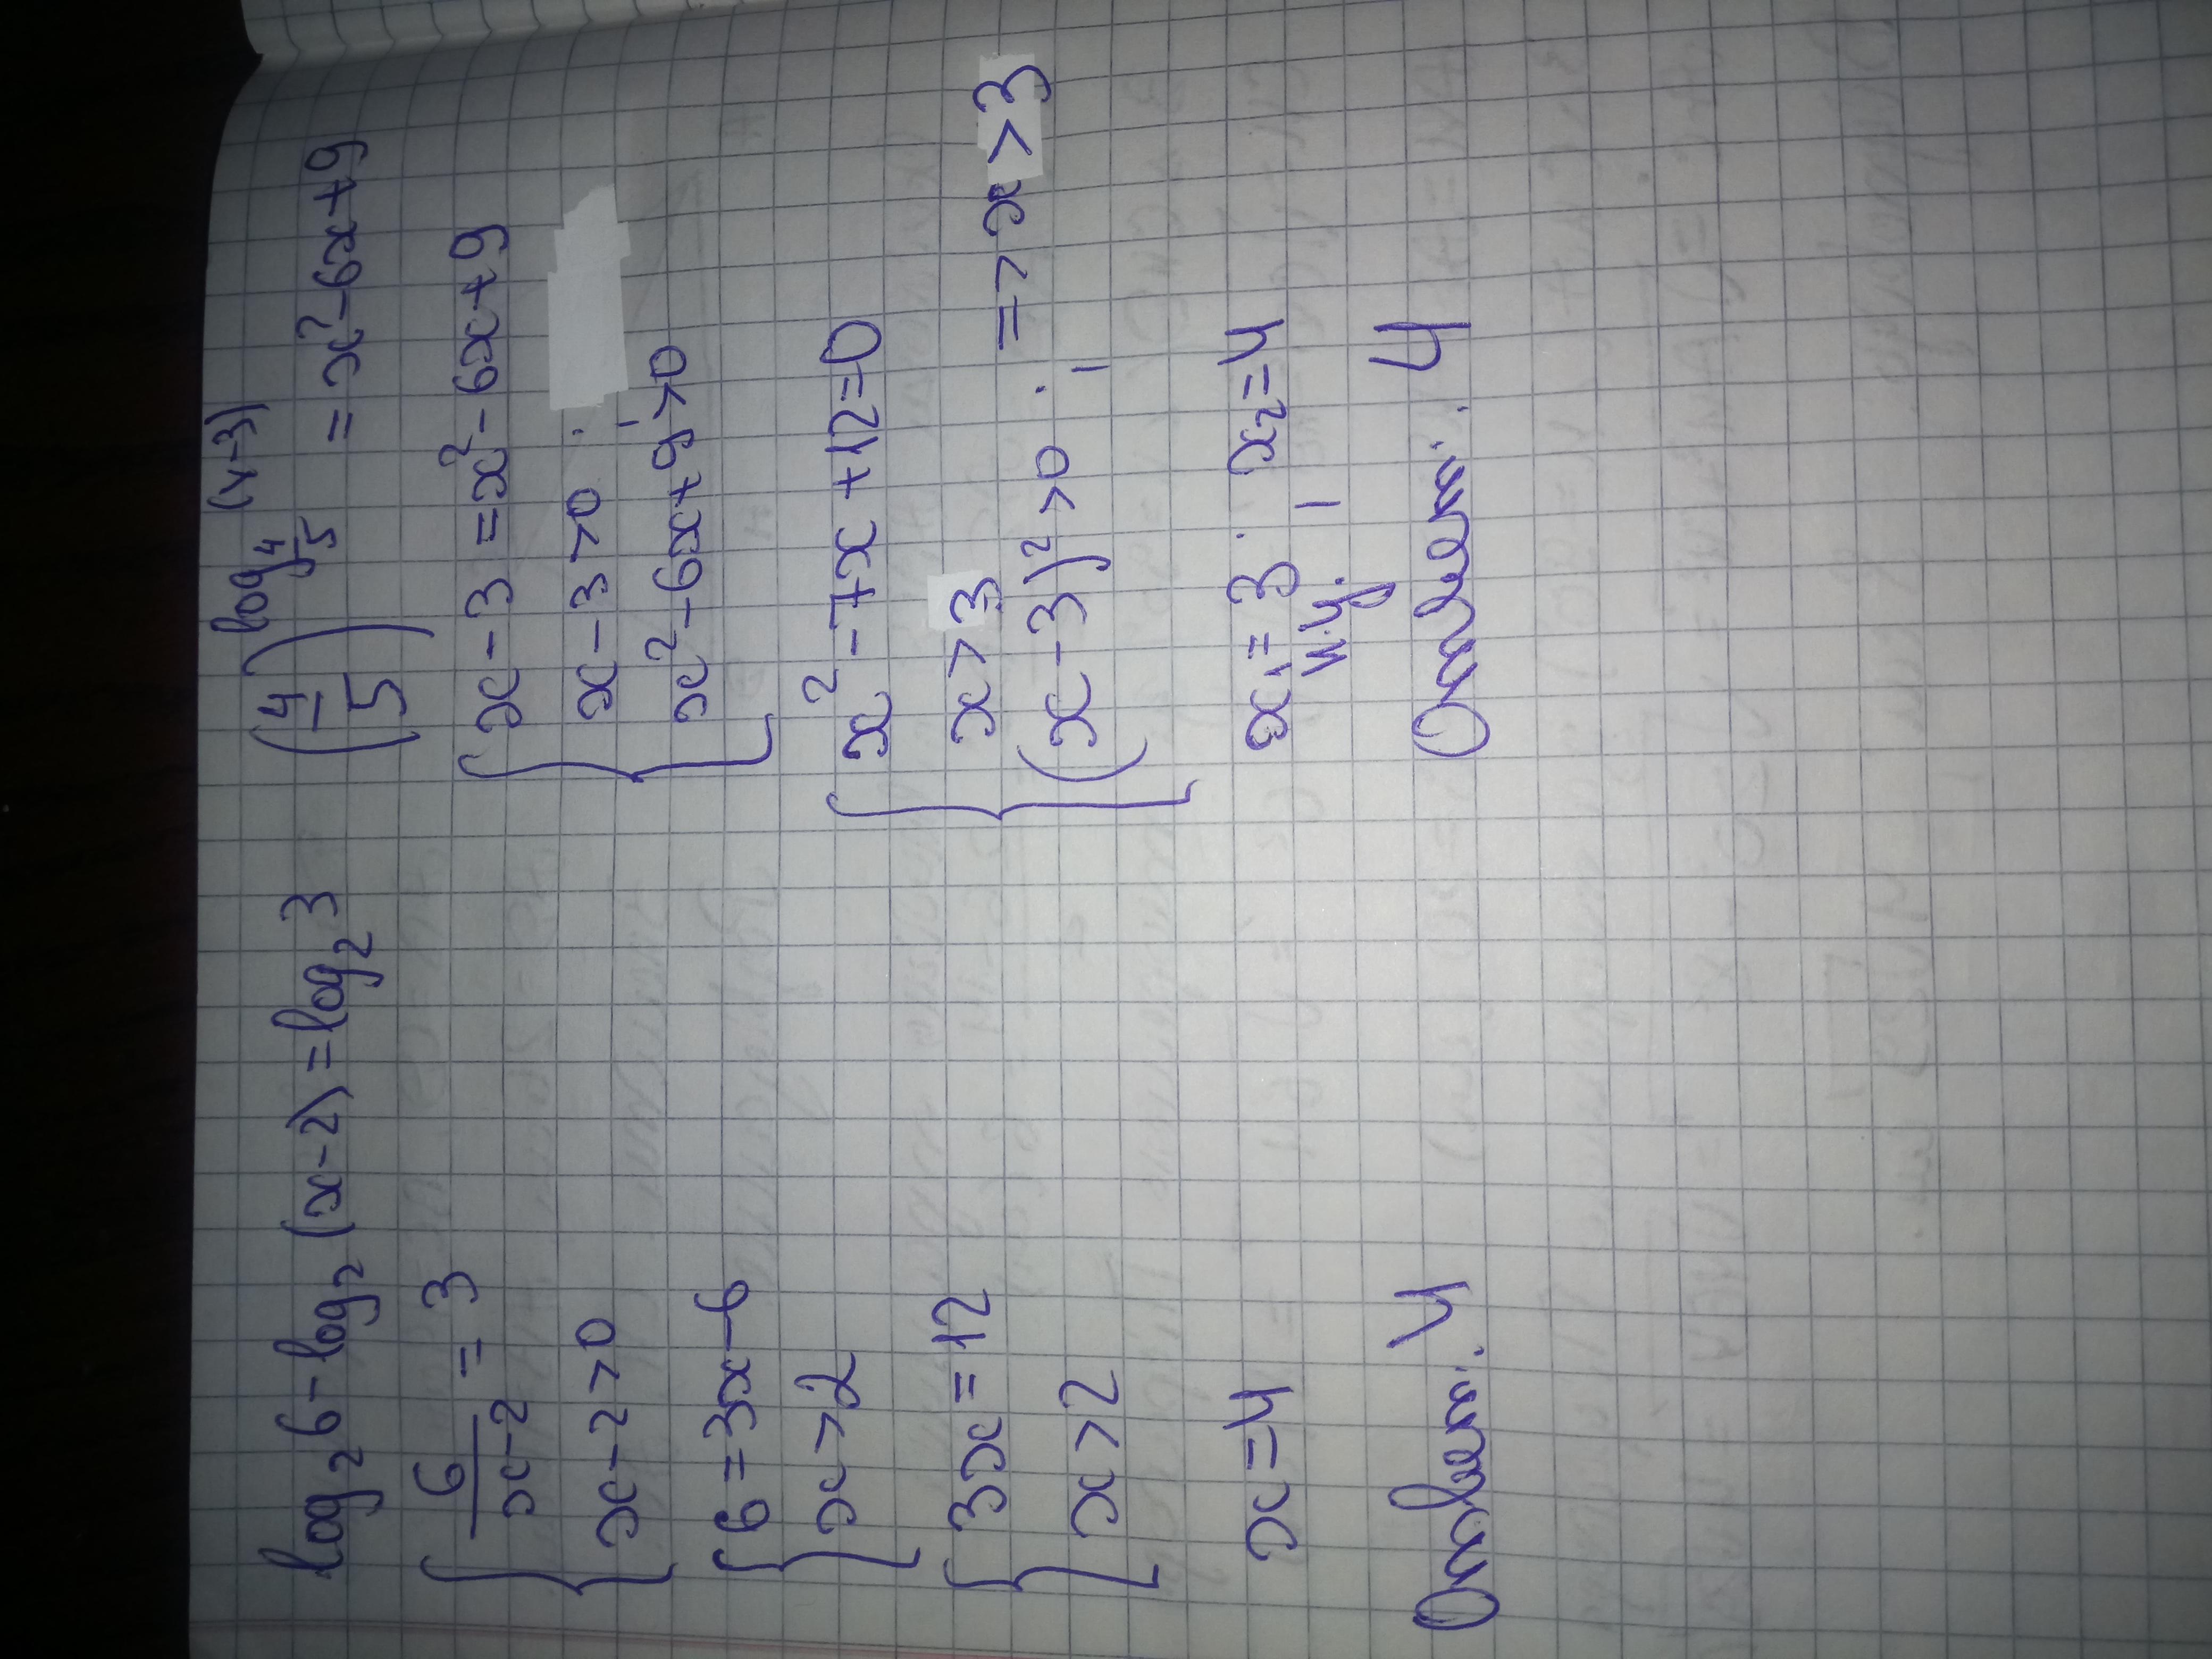 log₂6 - log₂(x-2) = log₂3
{ 6/(x-2) = 3
x-2>0
{ 6=3x-6
x>2
{ 3x=12
x>2
x=4
Ответ: 4
(4/5)^(log_(4/5)(x-3)) = x²-6x+9
{ x-3=x²-6x+9
x-3>0 ;
x²-6x+9>0
{ x²-7x+12=0
x>3
(x-3)²>0 ; => x>3
x₁=3 ; x₂=4
н.у.
Ответ: 4